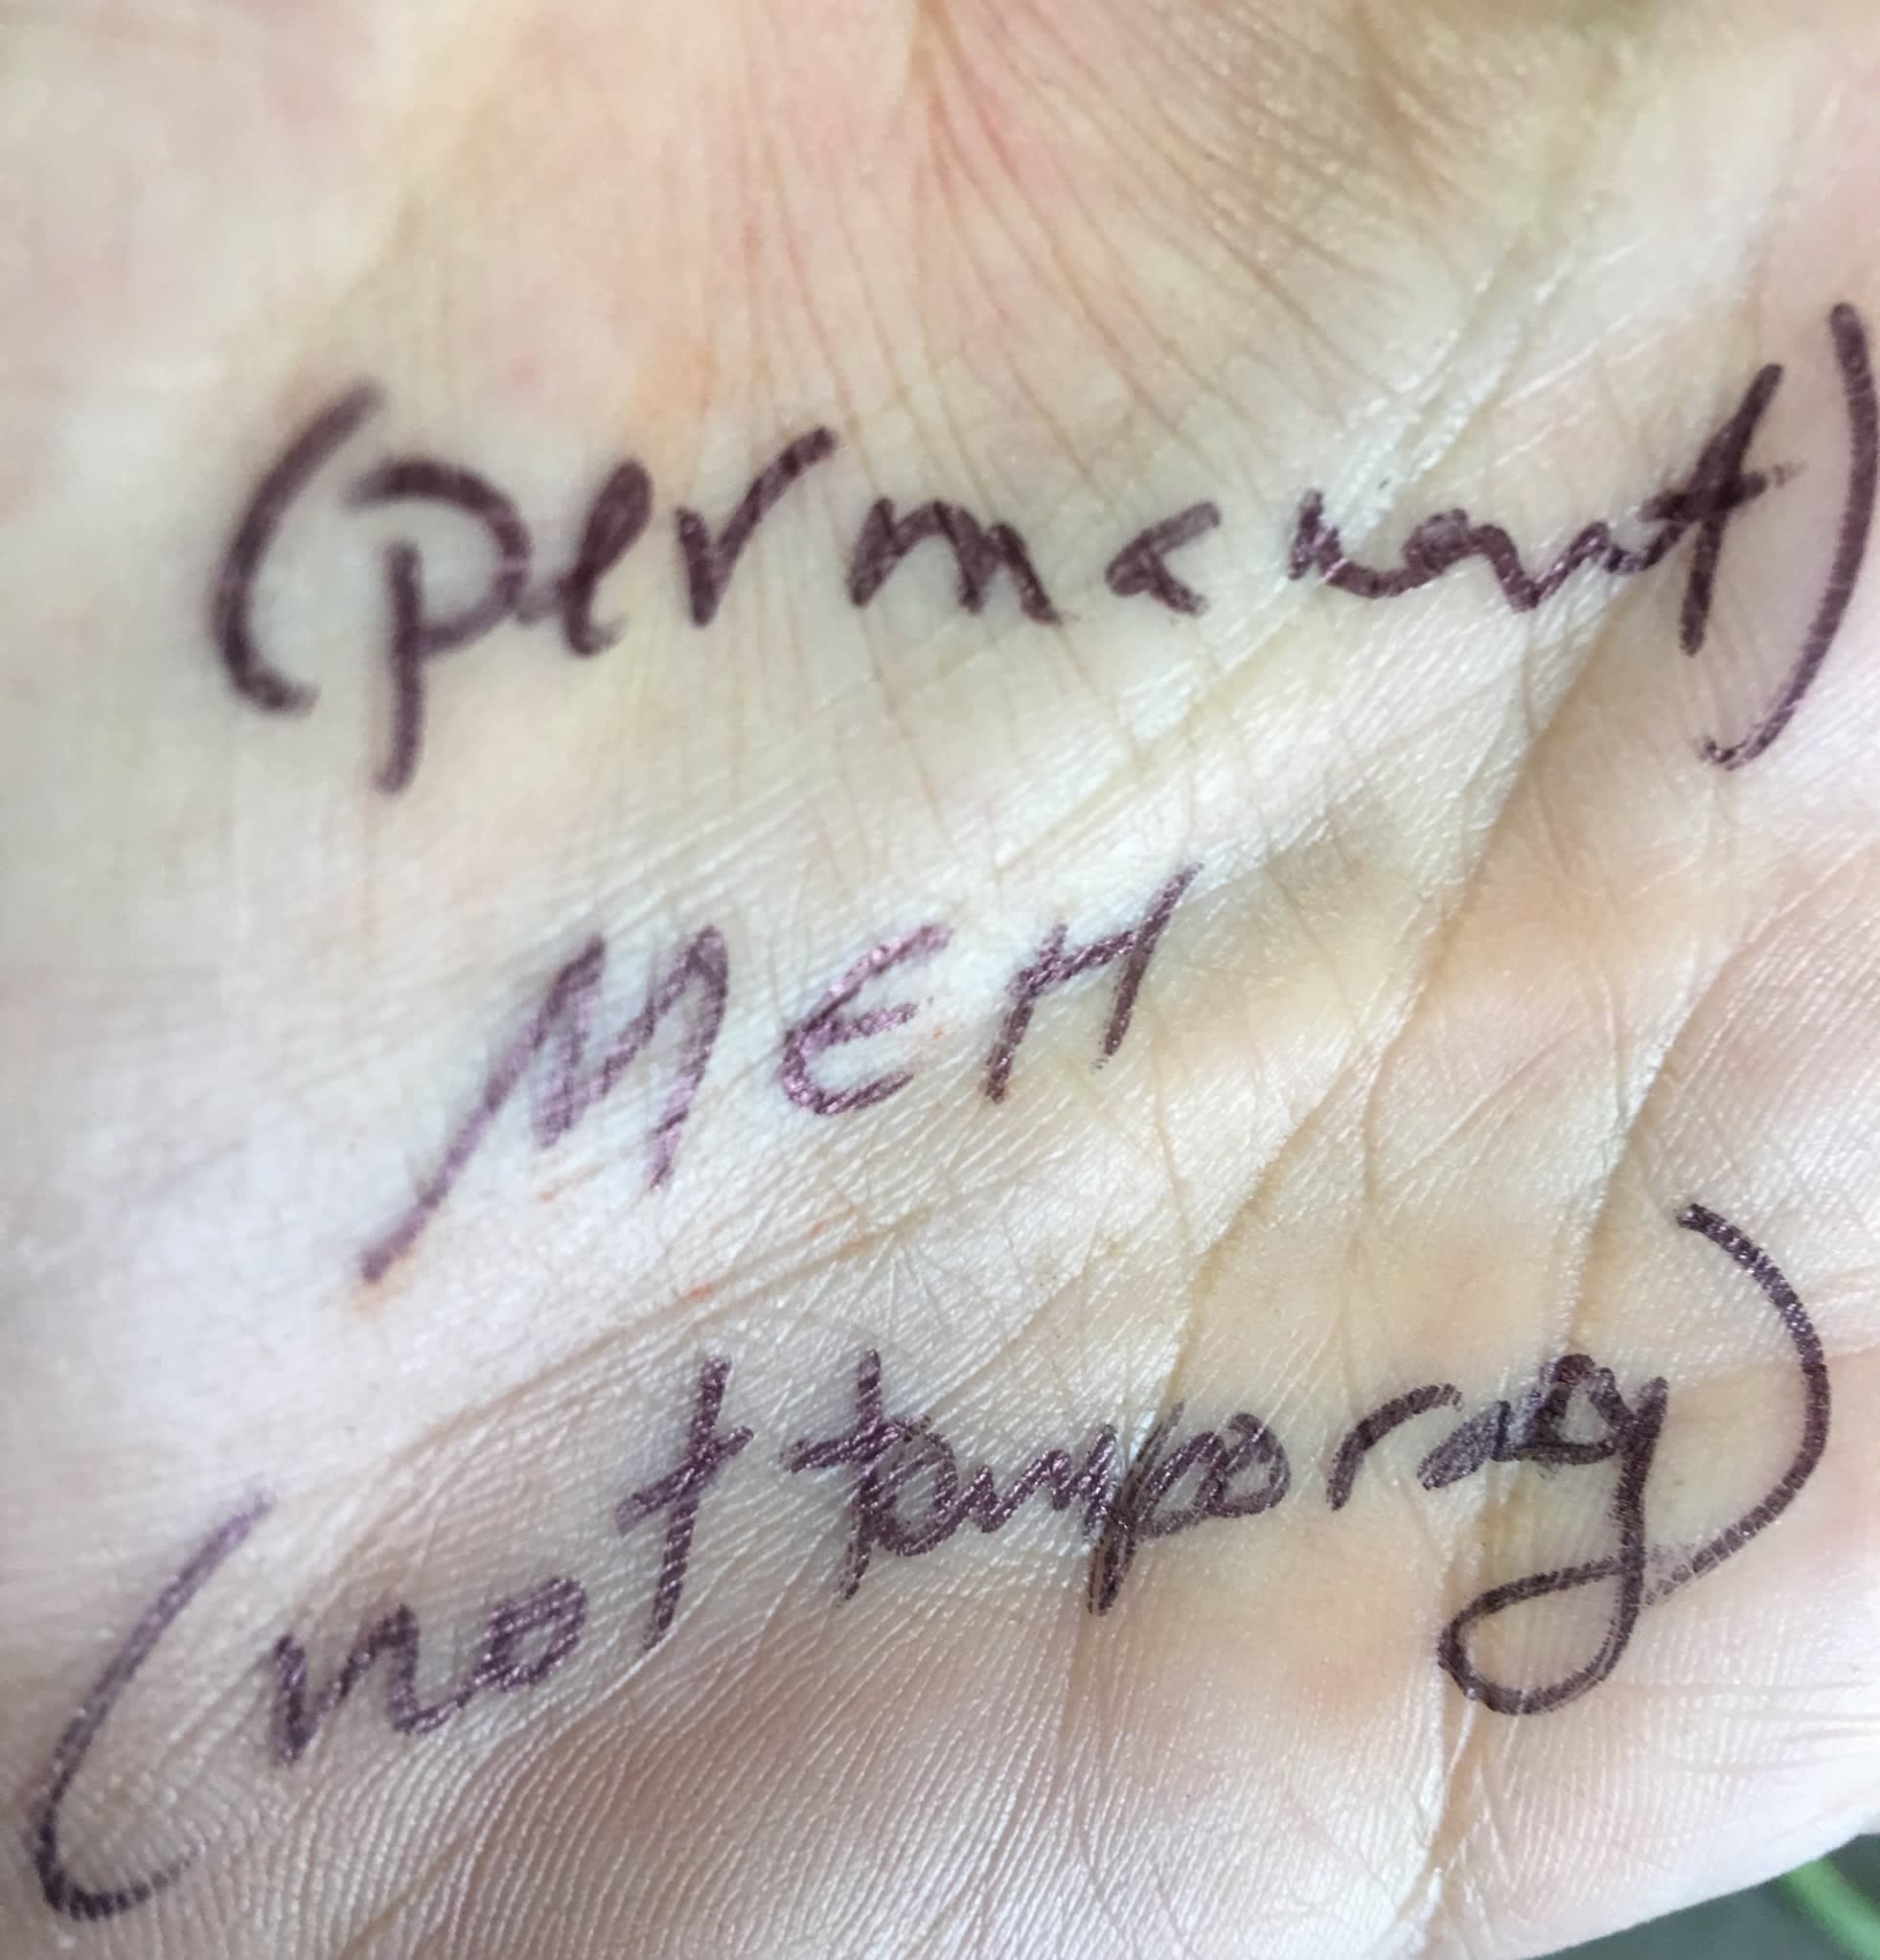 (permanent)
MEH
(not temporary)